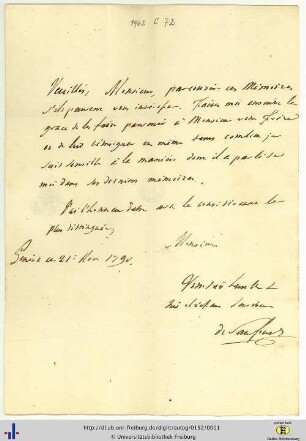 1962 C 72
Veuillez, Monsieur, parcourir ces Mémoires
s'ils peuvent vous intéresser. Faites moi ensuite la
grace de les faire parvenir à Monsieur votre Frère
et de lui témoigner en même tems combien je
suis sensible à la manière dont il a parlé de
moi dans ses derniers mémoires.
J'ai l'honneur d'être avec la considération la
plus distinguée,
Monsieur
Genève ce 21e Nov 1790.
Votre très humble &
très obéissant serviteur
de Saussure
http://dl.ub.uni-freiburg.de/diglit/autogr0152/0001
© Universitätsbibliothek Freiburg